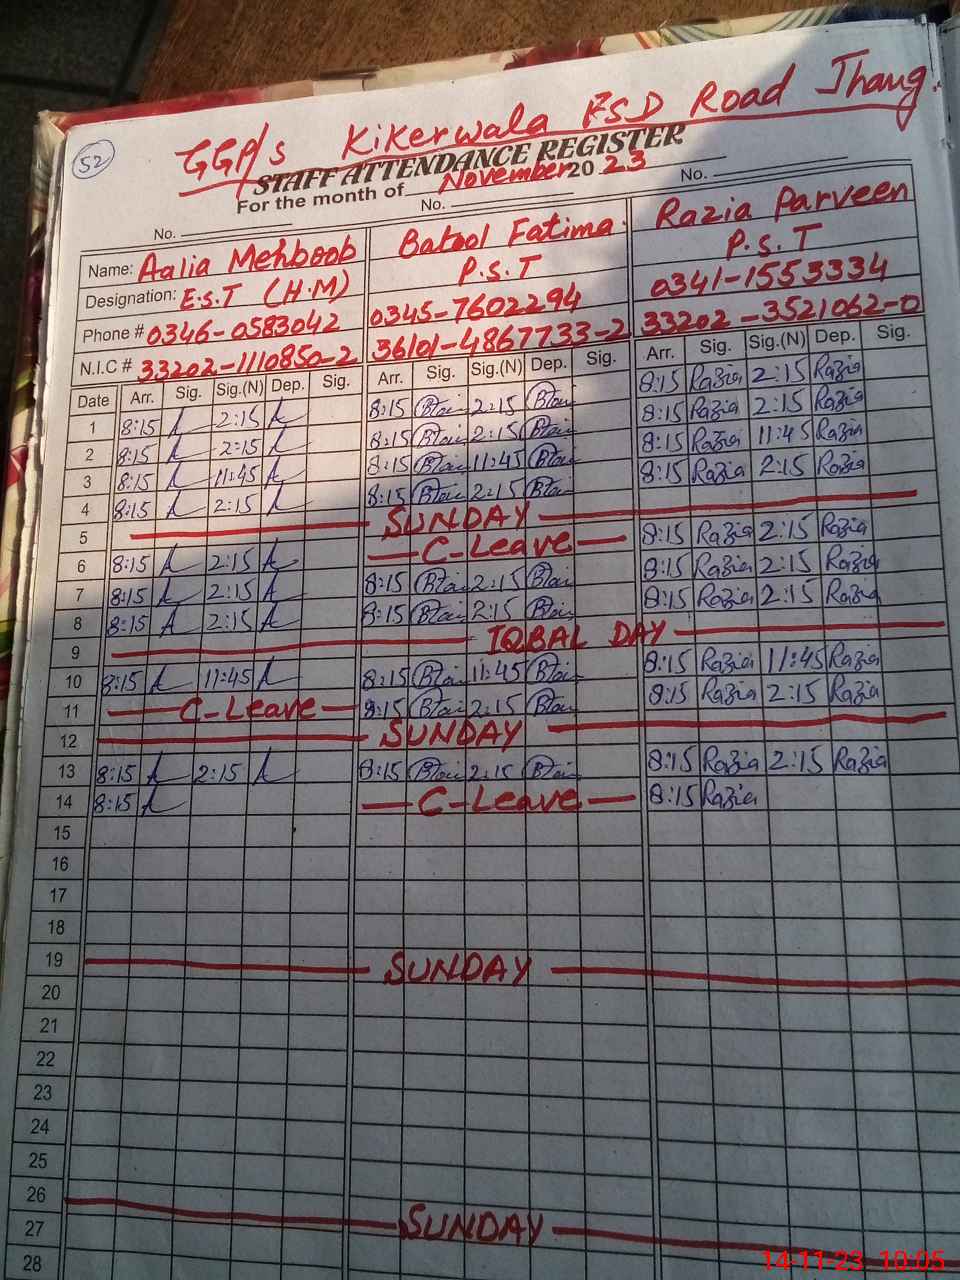 52
GGP/s Kikerwala FSD Road Jhang.
STAFF ATTENDANCE REGISTER
For the month of November 20 23
No. No. No.
Name: Aalia Mehboob Batool Fatima. Razia Parveen
Designation: E.S.T (H.M) P.S.T P.S.T
Phone # 0346-0583042 0345-7602294 0341-1553334
N.I.C # 33202-1110850-2 36101-4867733-2 33202-3521062-0
Date Arr. Sig. Sig.(N) Dep. Sig. Arr. Sig. Sig.(N) Dep. Sig. Arr. Sig. Sig.(N) Dep. Sig.
1 8:15 2:15 8:15 2:15 8:15 Razia 2:15 Razia
2 8:15 2:15 8:15 2:15 8:15 Razia 2:15 Razia
3 8:15 11:45 8:15 11:45 8:15 Razia 11:45 Razia
4 8:15 2:15 8:15 2:15 8:15 Razia 2:15 Razia
5 SUNDAY
6 8:15 2:15 C-Leave 8:15 Razia 2:15 Razia
7 8:15 2:15 8:15 2:15 8:15 Razia 2:15 Razia
8 8:15 2:15 8:15 2:15 8:15 Razia 2:15 Razia
9 IQBAL DAY
10 8:15 11:45 8:15 11:45 8:15 Razia 11:45 Razia
11 C-Leave 8:15 2:15 8:15 Razia 2:15 Razia
12 SUNDAY
13 8:15 2:15 8:15 2:15 8:15 Razia 2:15 Razia
14 8:15 C-Leave 8:15 Razia
15
16
17
18
19 SUNDAY
20
21
22
23
24
25
26 SUNDAY
27
28
14-11-23 10:05